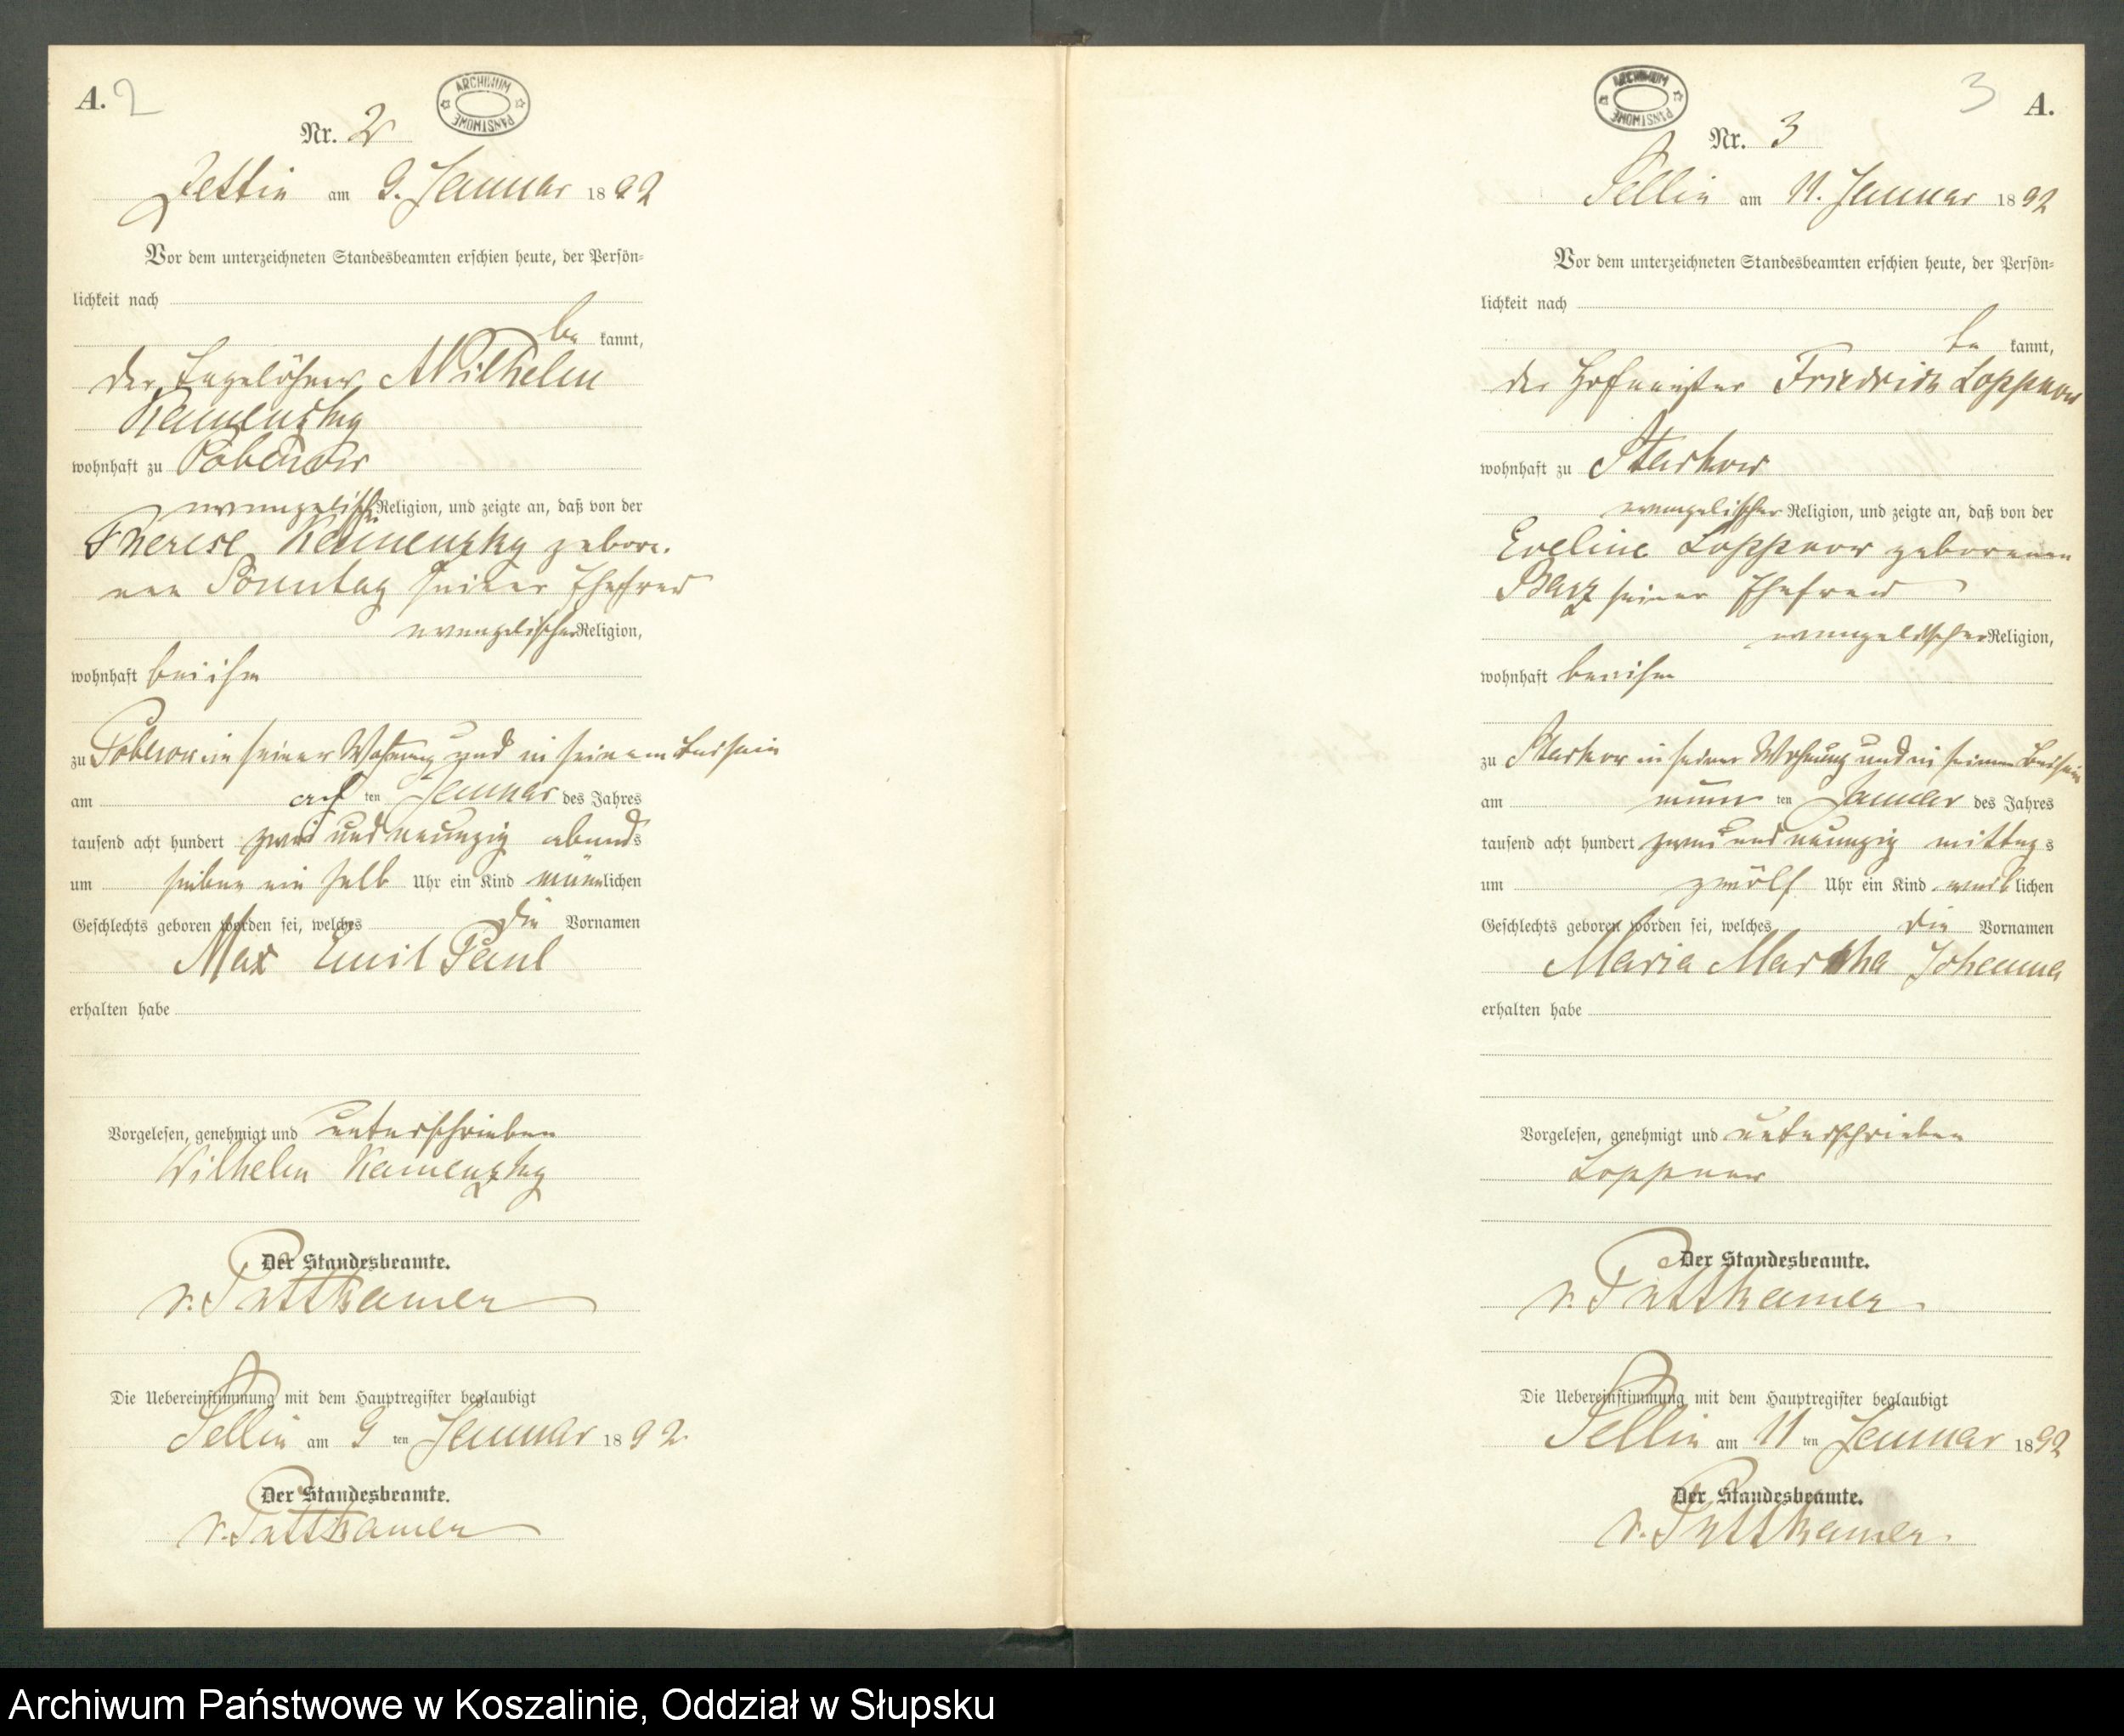 A. 2
ARCHIWUM PAŃSTWOWE
Nr. 2
am 9. Januar 1892
Vor dem unterzeichneten Standesbeamten erschien heute, der Persön-
lichkeit nach
be kannt,
der Tagelöhner Wilhelm
Kamenzky
wohnhaft zu Poberow
evangelischer Religion, und zeigte an, daß von der
Therese Kamenzky gebore-
nen Sonntag seiner Ehefrau
evangelischer Religion,
wohnhaft bei ihm
zu Poberow in seiner Wohnung und in seinem Beisein
am acht ten Januar des Jahres
tausend acht hundert zwei und neunzig abends
um sieben ein halb Uhr ein Kind männlichen
Geschlechts geboren worden sei, welches die Vornamen
Max Emil Paul
erhalten habe
Vorgelesen, genehmigt und unterschrieben
Wilhelm Kamenzky
Der Standesbeamte.
v. Puttkamer
Die Uebereinstimmung mit dem Hauptregister beglaubigt
Sellin am 9 ten Januar 1892.
Der Standesbeamte.
v. Puttkamer
ARCHIWUM PAŃSTWOWE
3 A.
Nr. 3
Sellin am 11. Januar 1892
Vor dem unterzeichneten Standesbeamten erschien heute, der Persön-
lichkeit nach
be kannt,
der Hofmeister Friedrich Loppnow
wohnhaft zu Starkow
evangelischer Religion, und zeigte an, daß von der
Eveline Loppnow geborenen
Barz seiner Ehefrau
evangelischer Religion,
wohnhaft bei ihm
zu Starkow in seiner Wohnung und in seinem Beisein
am neun ten Januar des Jahres
tausend acht hundert zwei und neunzig mittags
um zwölf Uhr ein Kind weiblichen
Geschlechts geboren worden sei, welches die Vornamen
Maria Martha Johanna
erhalten habe
Vorgelesen, genehmigt und unterschrieben
Loppnow
Der Standesbeamte.
v. Puttkamer
Die Uebereinstimmung mit dem Hauptregister beglaubigt
Sellin am 11 ten Januar 1892
Der Standesbeamte.
v. Puttkamer.
Archiwum Państwowe w Koszalinie, Oddział w Słupsku